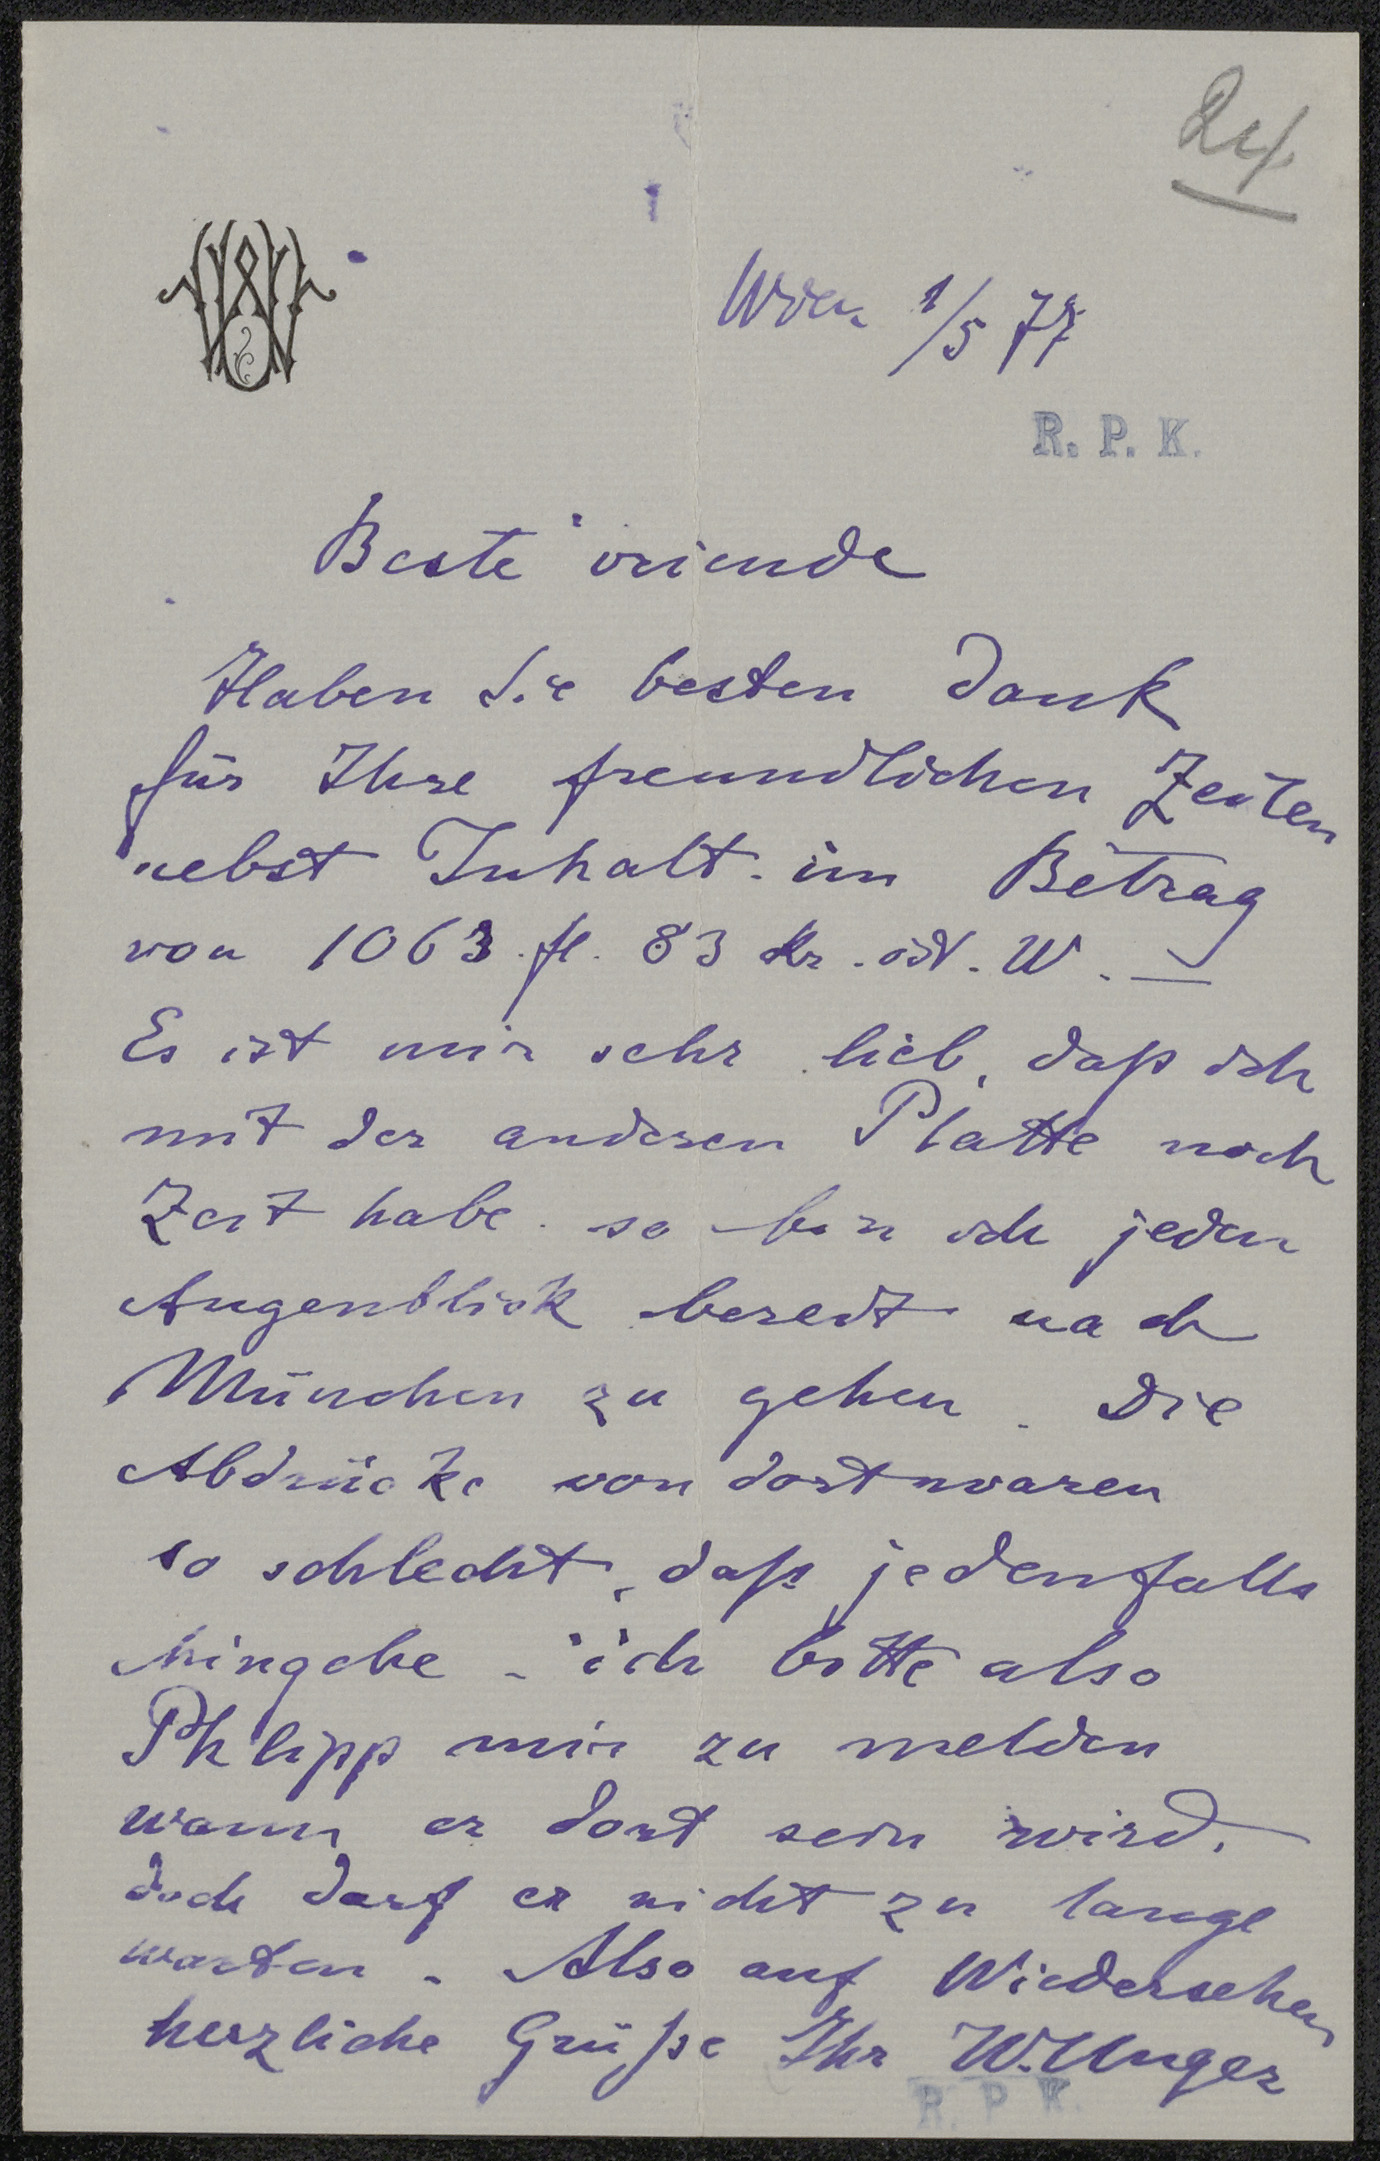 24
WU
Wien 1/5 77
R. P. K.
Beste vriende
Haben Sie besten Dank
für Ihre freundlichen Zeilen
nebst Inhalt im Betrag
von 1063 fl. 83 kr. öst. W. —
Es ist mir sehr lieb, daß ich
mit der anderen Platte noch
Zeit habe. so bin ich jeden
Augenblick bereit nach
München zu gehen. Die
Abdrücke von dort waren
so schlecht, daß jedenfalls
hingehe - ich bitte also
Phlipp mir zu melden
wann er dort sein wird,
doch darf er nicht zu lange
warten. Also auf Wiedersehen
herzliche Grüße Ihr W. Unger
R. P. K.